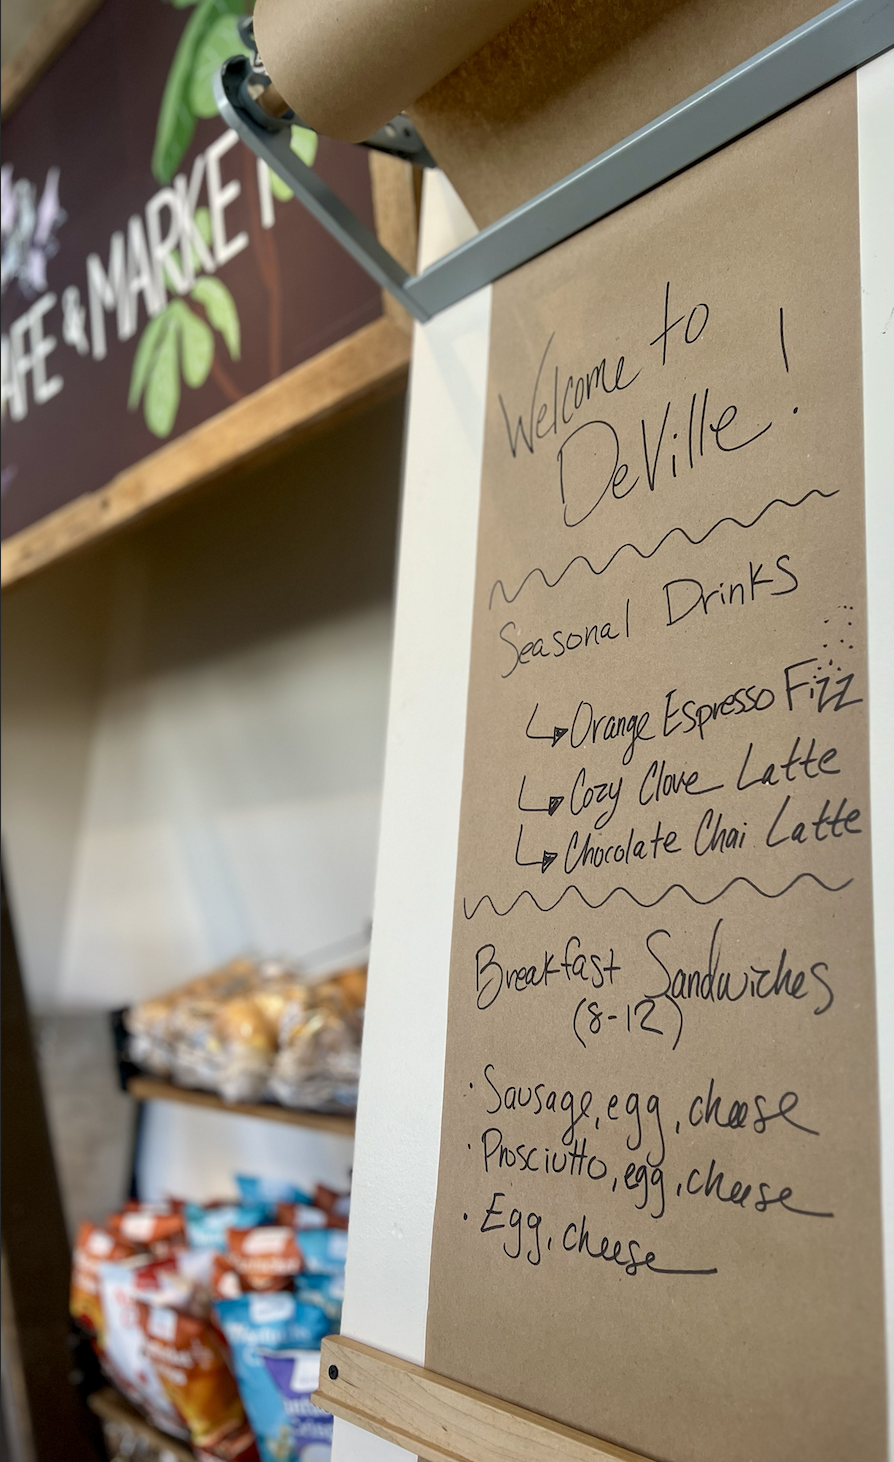 AFE & MARKET
Welcome to
DeVille!
Seasonal Drinks
Orange Espresso Fizz
Cozy Clove Latte
Chocolate Chai Latte
Breakfast Sandwiches
(8-12)
· Sausage, egg, cheese
· Prosciutto, egg, cheese
· Egg, cheese